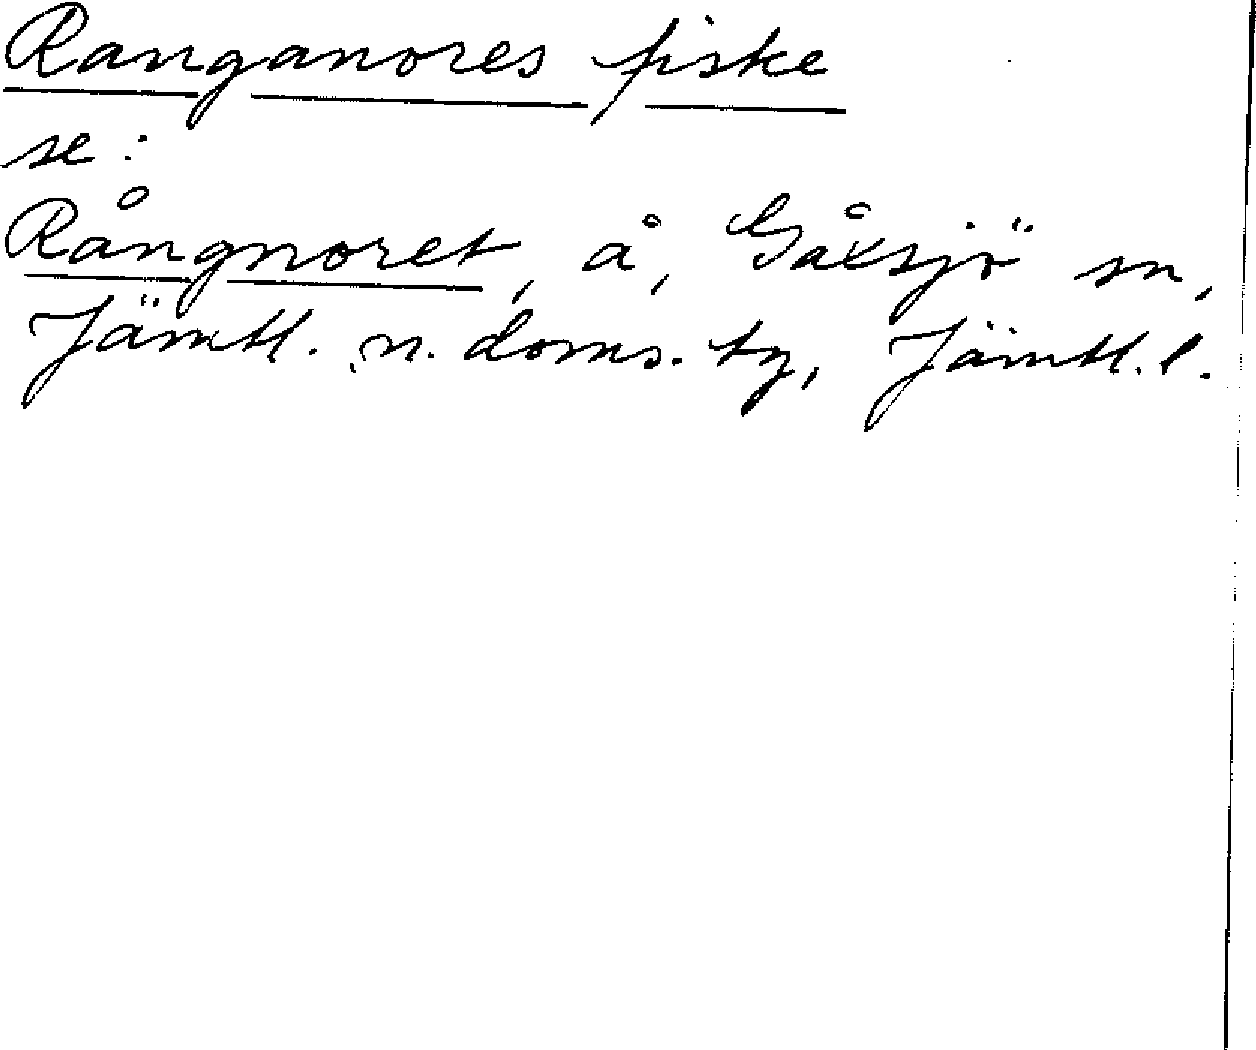 Ranganores fiske
se:
Rångnoret, å, Gåxsjö sn,
Jämtl. n. doms. tg, Jämtl. l.